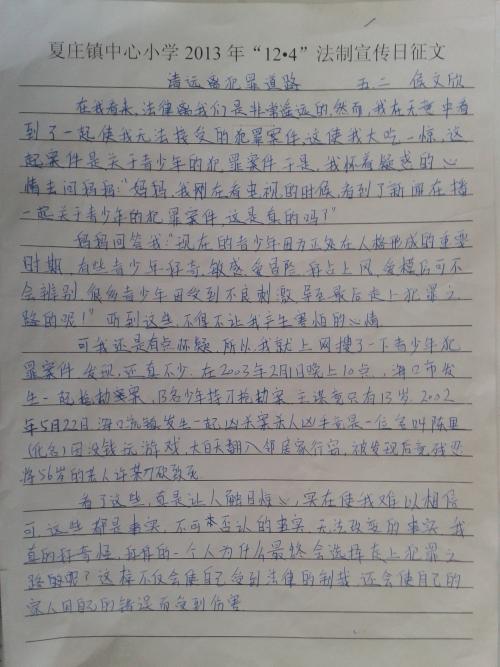 夏庄镇中心小学2013年“12•4”法制宣传日征文
请远离犯罪道路 五.二 侯文欣
在我看来,法律离我们是非常遥远的,然而,我在无意中看
到了一起使我无法接受的犯罪案件,这使我大吃一惊,这
起案件是关于青少年的犯罪案件于是,我怀着疑惑的心
情去问妈妈:“妈妈,我刚在看电视的时候,看到了新闻在播
一起关于青少年的犯罪案件,这是真的吗?”
妈妈回答我:“现在的青少年因为正处在人格形成的重要
时期,有些青少年好奇,敏感,爱冒险,好占上风,爱模仿可不
会辨别,很多青少年因受到不良刺激导致最后走上犯罪之
路的呢!”听到这些,不得不让我产生害怕的心情.
可我还是有点怀疑,所以,我就上网搜了一下青少年犯
罪案件,发现,还真不少.在2003年2月1日晚上10点,海口市发
生一起抢劫案,13名少年持刀抢劫案,主谋竟只有13岁.2002
年5月22日,海口镇发生一起凶杀案杀人凶手竟是一位名叫陈果
(化名)因没钱玩游戏,大白天翻入邻居家行窃,被发现后竟残忍
将56岁的老人许某刀砍致死.
看了这些,真是让人触目惊心,实在使我难以相信
可,这些都是事实,不可否认的事实,无法改变的事实.我
真的好奇怪,好好的一个人为什么最终会选择走上犯罪之
路的呢?这样不仅会使自己受到法律的制裁,还会使自己的
家人因自己的错误而受到伤害.